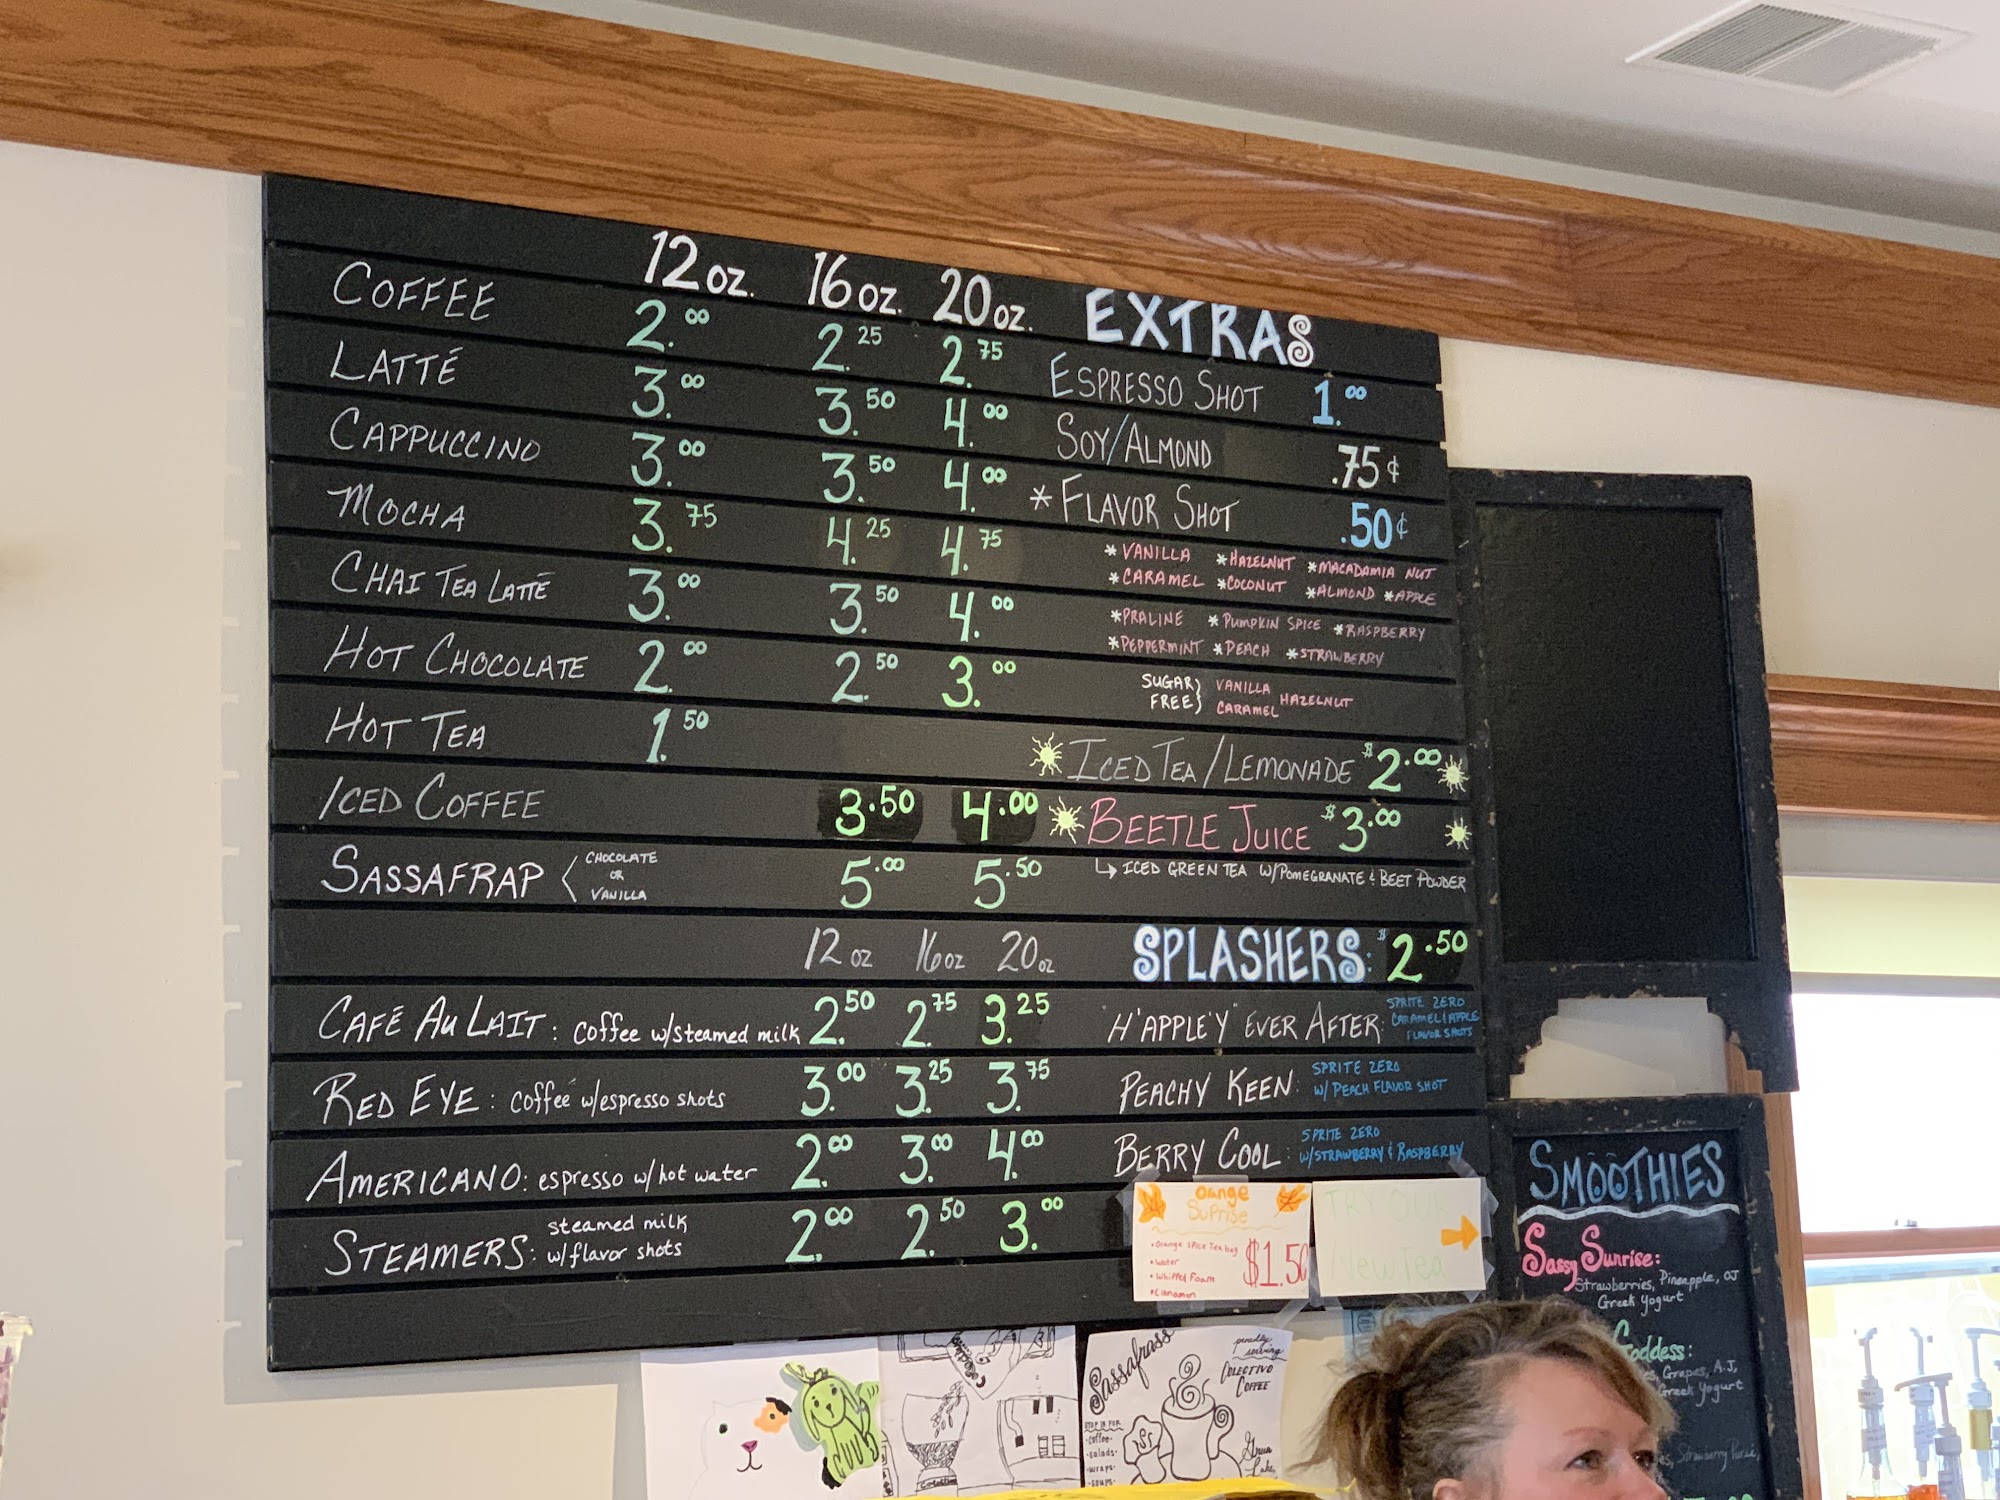 12 oz. 16 oz. 20 oz.
COFFEE 2.00 2.25 2.75
LATTÉ 3.00 3.50 4.00
CAPPUCCINO 3.00 3.50 4.00
MOCHA 3.75 4.25 4.75
CHAI TEA LATTÉ 3.00 3.50 4.00
HOT CHOCOLATE 2.00 2.50 3.00
HOT TEA 1.50
ICED COFFEE 3.50 4.00
SASSAFRAP < CHOCOLATE OR VANILLA 5.00 5.50
12 oz 16 oz 20 oz
CAFÉ AU LAIT: coffee w/steamed milk 2.50 2.75 3.25
RED EYE: coffee w/espresso shots 3.00 3.25 3.75
AMERICANO: espresso w/hot water 2.00 3.00 4.00
STEAMERS: steamed milk w/flavor shots 2.00 2.50 3.00
EXTRAS
ESPRESSO SHOT 1.00
SOY/ALMOND .75¢
*FLAVOR SHOT .50¢
*VANILLA *HAZELNUT *MACADAMIA NUT
*CARAMEL *COCONUT *ALMOND *APPLE
*PRALINE *PUMPKIN SPICE *RASPBERRY
*PEPPERMINT *PEACH *STRAWBERRY
SUGAR FREE} VANILLA CARAMEL HAZELNUT
ICED TEA/LEMONADE $2.00
BEETLE JUICE $3.00
↳ ICED GREEN TEA W/POMEGRANATE & BEET POWDER
SPLASHERS: $2.50
"H'APPLE'Y" EVER AFTER: SPRITE ZERO CARAMEL & APPLE FLAVOR SHOTS
PEACHY KEEN: SPRITE ZERO W/ PEACH FLAVOR SHOT
BERRY COOL: SPRITE ZERO W/STRAWBERRY & RASPBERRY
Orange Suprise
• Orange Spice Tea bag
• Water
• Whipped Foam
• Cinnamon
$1.50
TRY OUR
New Tea
SMOOTHIES
Sassy Sunrise:
Strawberries, Pineapple, OJ
Greek Yogurt
Goddess:
Grapes, A.J,
Greek Yogurt
Sassafrass
proudly serving
COLECTIVO COFFEE
STOP IN FOR
·coffee·
·salads·
·wraps·
·soups·
Green Lake,